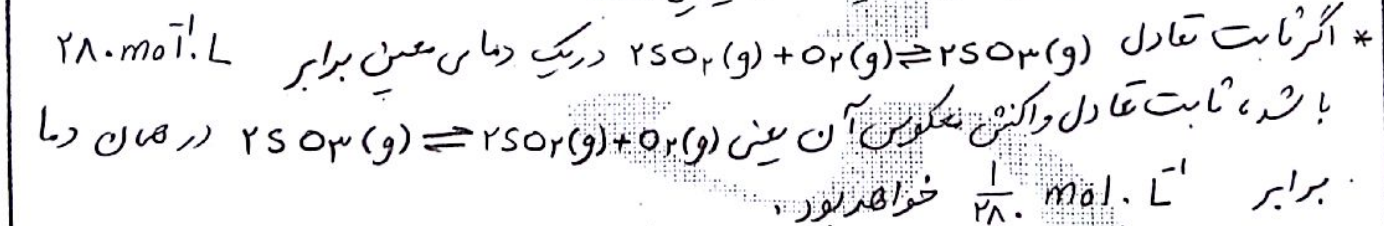 * اگر ثابت تعادل ۲SO۲(g)+O۲(g)⇌۲SO۳(g) در یک دمای معین برابر ۲۸۰ mol⁻¹.L
باشد، ثابت تعادل واکنش معکوس آن یعنی ۲SO۳(g)⇌۲SO۲(g)+O۲(g) در همان دما
برابر ۱/۲۸۰ mol.L⁻¹ خواهد بود.